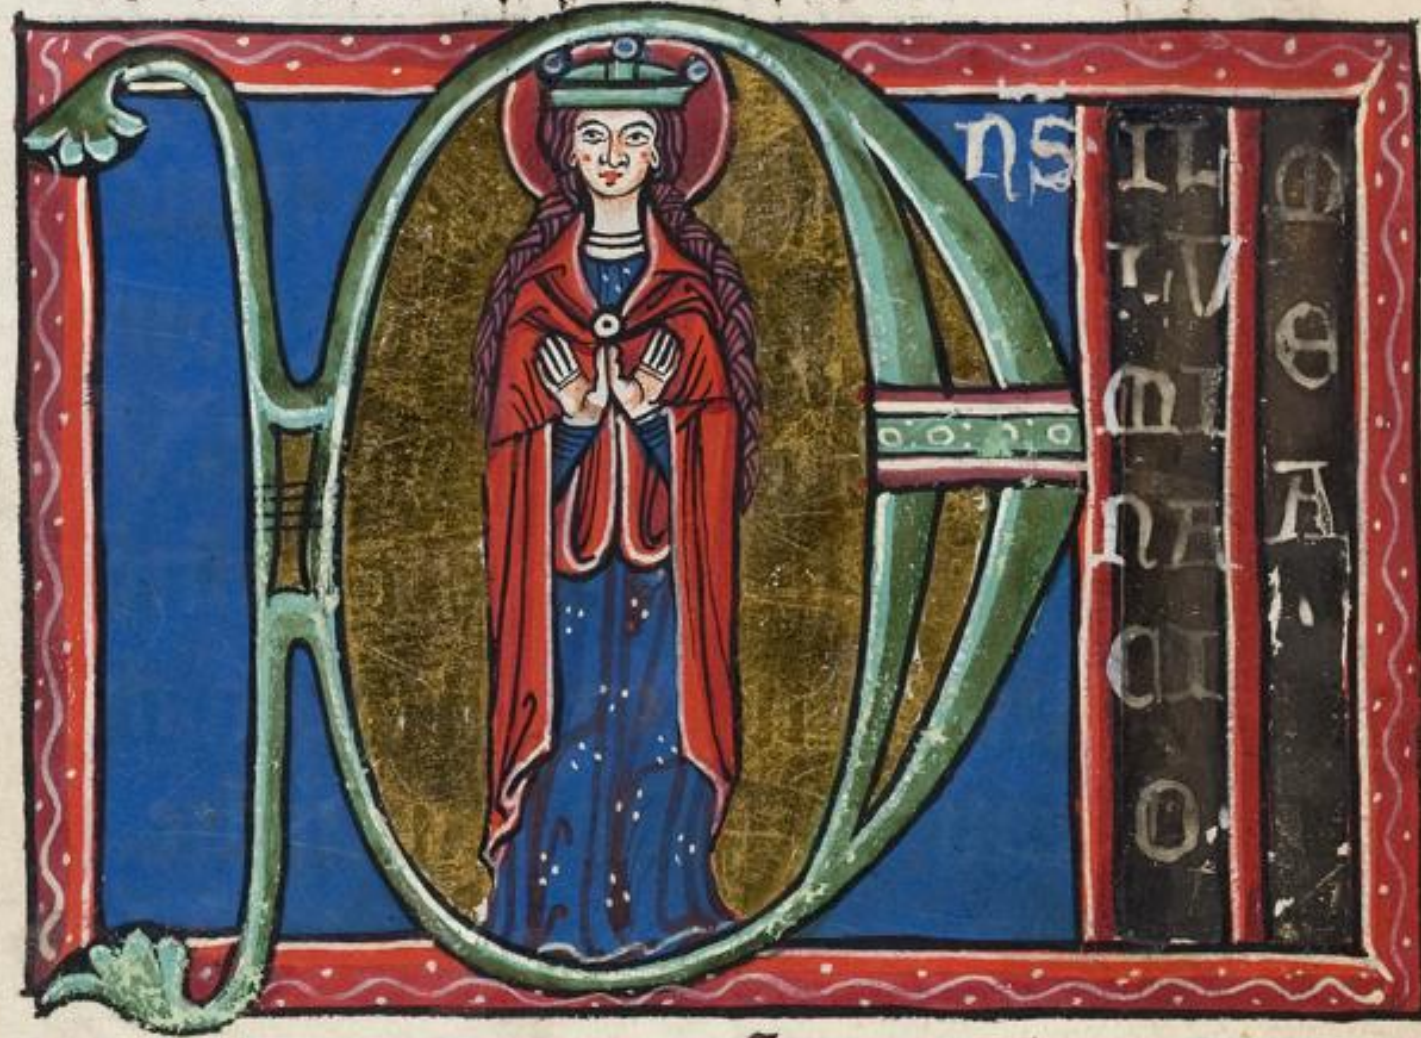 DN̄S
IL
LV
MI
NA
CI
O
M
E
A